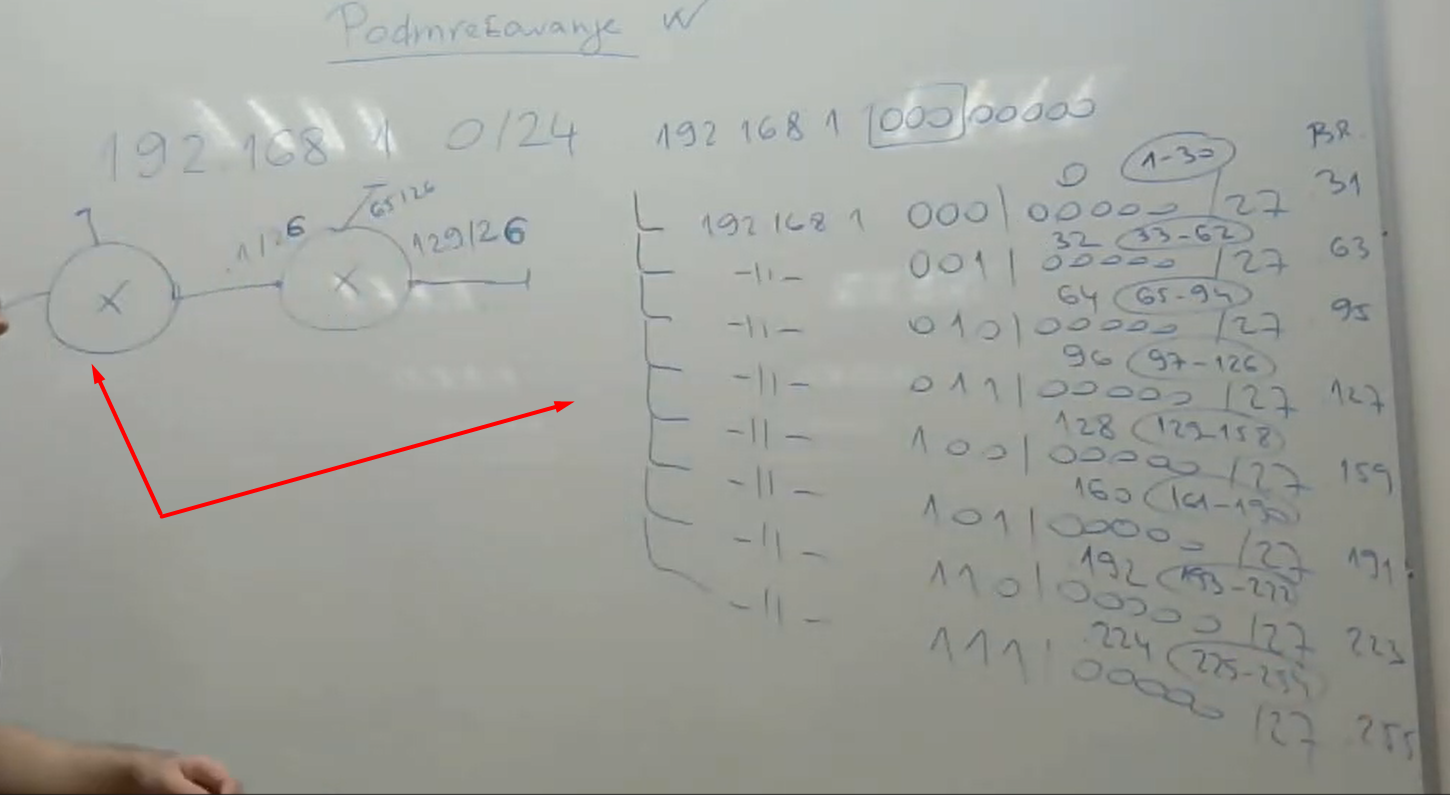 Podmrežavanje
192.168 1 0/24
192 168 1 000 00000
BR.
65/26
.1/26
129/26
X
X
0 1-30
192 168 1 000 | 00000 /27 31
32 33-62
-11- 001 | 00000 /27 63
64 65-94
-11- 010 | 00000 /27 95
96 97-126
-11- 011 | 00000 /27 127
128 129-158
-11- 100 | 00000 /27 159
160 161-190
-11- 101 | 00000 /27 191
192 193-222
-11- 110 | 00000 /27 223
224 225-254
-11- 111 | 00000 /27 255